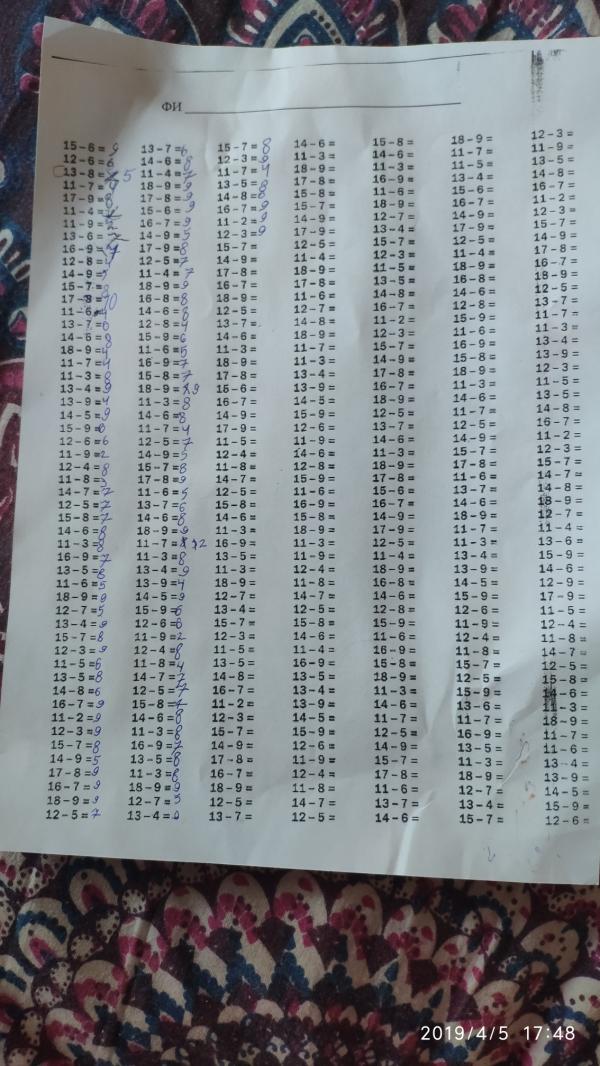 ФИ
15-6=9
12-6=6
13-8=5
11-7=4
17-9=8
11-4=
11-9=2
13-6=
16-9=
12-8=
14-9=5
15-7=8
17-8=
11-6=
13-7=6
14-6=8
18-9=
11-7=4
11-3=8
13-4=9
13-9=4
14-5=9
15-9=6
12-6=6
11-9=2
12-4=8
11-8=3
14-7=7
12-5=7
15-8=7
14-6=8
11-3=8
16-9=7
13-5=8
11-6=5
18-9=9
12-7=5
13-4=9
15-7=8
12-3=9
11-5=6
13-5=8
14-8=6
16-7=9
11-2=9
12-3=9
15-7=8
14-9=5
17-8=9
16-7=9
18-9=9
12-5=7
13-7=6
14-6=8
11-4=7
18-9=9
17-8=9
15-6=9
16-7=9
14-9=5
17-9=8
12-5=7
11-4=7
18-9=9
16-8=8
14-6=8
12-8=4
15-9=6
11-6=5
16-9=7
15-8=7
18-9=9
11-3=8
14-6=8
11-7=4
12-5=7
14-9=5
15-7=8
17-8=9
11-6=5
13-7=6
14-6=8
18-9=9
11-7=
11-3=8
13-4=9
13-9=4
14-5=9
15-9=6
12-6=6
11-9=2
12-4=8
11-8=4
14-7=7
12-5=7
15-8=7
14-6=8
11-3=8
16-9=7
13-5=8
11-3=8
18-9=9
12-7=5
13-4=9
15-7=8
12-3=9
11-7=4
13-5=8
14-8=8
16-7=9
11-2=9
12-3=9
15-7=
14-9=
17-8=
16-7=
18-9=
12-5=
13-7=
14-6=
11-3=
18-9=
17-8=
15-6=
16-7=
14-9=
17-9=
11-5=
12-4=
11-8=
14-7=
12-5=
15-8=
14-6=
11-3=
16-9=
13-5=
11-6=
18-9=
12-7=
13-4=
15-7=
12-3=
11-5=
13-5=
14-8=
16-7=
11-2=
12-3=
15-7=
14-9=
17-8=
16-7=
18-9=
12-5=
13-7=
14-6=
11-3=
18-9=
17-8=
15-6=
16-7=
14-9=
17-9=
12-5=
11-4=
18-9=
17-8=
11-6=
12-7=
14-8=
18-9=
11-7=
11-3=
13-4=
13-9=
14-5=
15-9=
12-6=
11-9=
14-6=
12-8=
15-9=
11-6=
16-9=
15-8=
18-9=
11-3=
11-9=
12-4=
11-8=
14-7=
12-5=
15-8=
14-6=
11-4=
16-9=
13-5=
13-4=
13-9=
14-5=
15-9=
12-6=
11-9=
12-4=
11-8=
14-7=
12-5=
15-8=
14-6=
11-3=
16-9=
11-6=
18-9=
12-7=
13-4=
15-7=
12-3=
11-5=
13-5=
14-8=
16-7=
11-2=
12-3=
15-7=
14-9=
17-8=
16-7=
18-9=
12-5=
13-7=
14-6=
11-3=
18-9=
17-8=
15-6=
16-7=
14-9=
17-9=
12-5=
11-4=
18-9=
16-8=
14-6=
12-8=
15-9=
11-6=
16-9=
15-8=
18-9=
11-3=
14-6=
11-7=
12-5=
14-9=
15-7=
17-8=
11-6=
13-7=
14-6=
18-9=
11-7=
11-5=
13-4=
15-6=
16-7=
14-9=
17-9=
12-5=
11-4=
18-9=
16-8=
14-6=
12-8=
15-9=
11-6=
16-9=
15-8=
18-9=
11-3=
14-6=
11-7=
12-5=
14-9=
15-7=
17-8=
11-6=
13-7=
14-6=
18-9=
11-7=
11-3=
13-4=
13-9=
14-5=
15-9=
12-6=
11-9=
12-4=
11-8=
15-7=
12-5=
15-9=
13-6=
11-7=
16-9=
13-5=
11-3=
18-9=
12-7=
13-4=
15-7=
12-3=
11-9=
13-5=
14-8=
16-7=
11-2=
12-3=
15-7=
14-9=
17-8=
16-7=
18-9=
12-5=
13-7=
11-7=
11-3=
13-4=
13-9=
12-3=
11-5=
13-5=
14-8=
16-7=
11-2=
12-3=
15-7=
14-7=
14-8=
18-9=
12-7=
11-4=
13-6=
15-9=
14-6=
12-9=
17-9=
11-5=
12-4=
11-8=
14-7=
12-5=
15-8=
14-6=
11-3=
18-9=
11-7=
11-6=
13-4=
13-9=
14-5=
15-9=
12-6=
2019/4/5 17:48